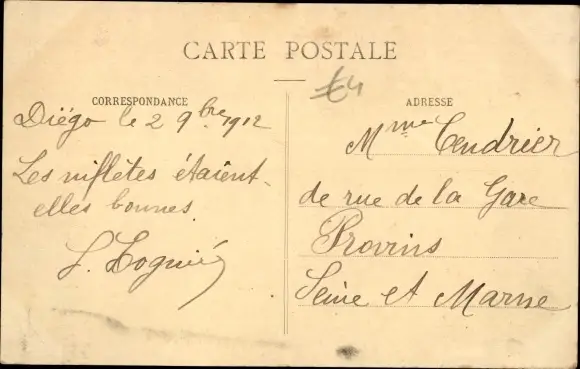 CARTE POSTALE
€4
CORRESPONDANCE
Diégo le 2 9bre 1912
Les niflètes étaient-
elles bonnes
ADRESSE
Mme Tendrier
de rue de la Gare
Provins
Seine et Marne